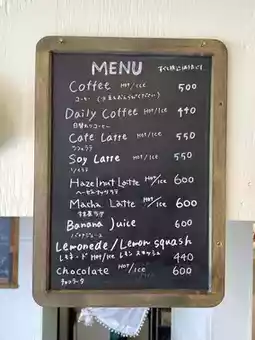 MENU
Coffee HOT/ICE 500
コーヒー
Daily Coffee HOT/ICE 440
日替わりコーヒー
Cafe Latte HOT/ICE 550
カフェラテ
Soy Latte HOT/ICE 550
ソイラテ
Hazelnut Latte HOT/ICE 600
ヘーゼルナッツラテ
Macha Latte HOT/ICE 600
抹茶ラテ
Banana Juice 600
バナナジュース
Lemonede/Lemon squash
レモネード HOT/ICE レモンスカッシュ 440
Chocolate HOT/ICE 600
チョコラータ